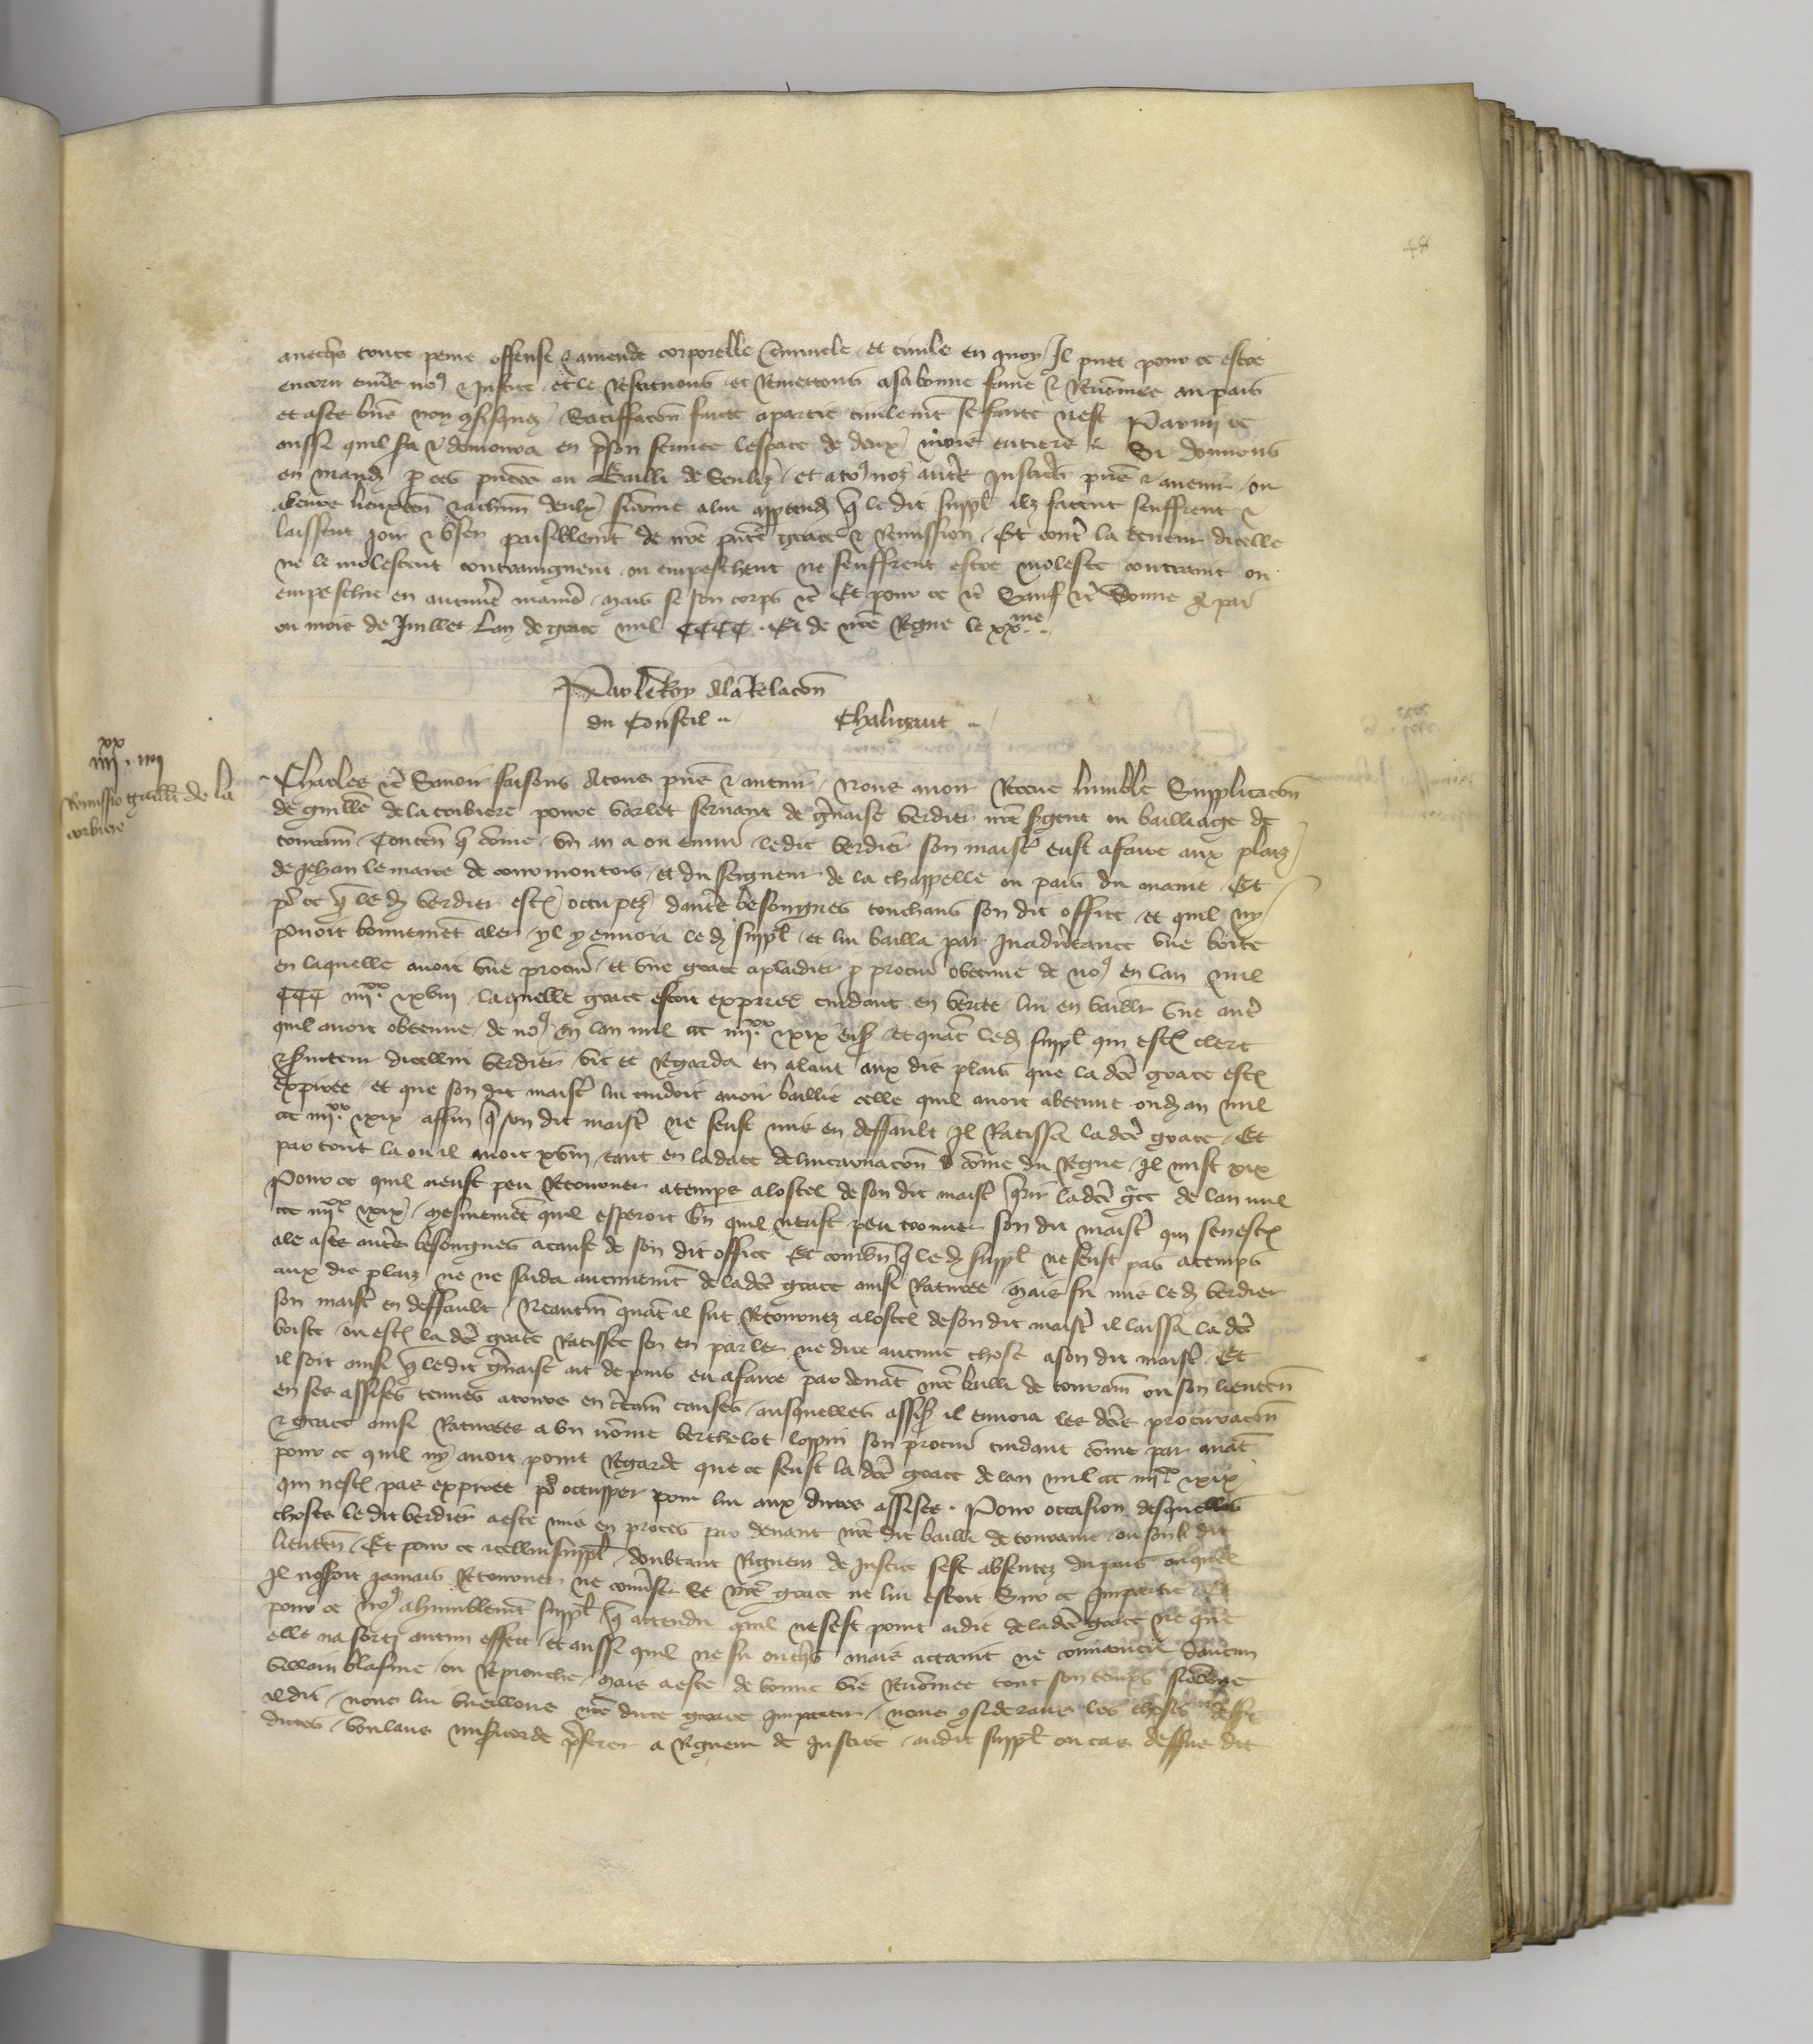 48
auecqs toute peine offense & amende corporelle criminele et ciuile en quoy Il puet pour ce estre
encoru enus no9 & Justice et le Restituons et Remettons a sa bonne fame & Renomee au pais
et a ses biens non confisquez Satisfacon faicte a partie ciuilemt se faicte nest Parmi ce
aussi quil sa & demoura en prison fermee lespace de deux mois entiers &c Si donnons
en mand p ces pntes au Bailli de Senliz et a to9 noz autres Justiciers pns & auenir ou
a leurs lieuxten & a chun deulx si come a lui appartendra q le dit suppl ilz facent seuffrent &
laissent joir & vser paisiblemt de nre pnte grace & Remission Et contre la teneur dicelle
ne le molestent contraingnent ou empeschent ne seuffrent estre moleste contraint ou
empeschie en aucune maniere mais se son corps &c Et pour ce &c Sauf &c Donne a par
ou mois de Juillet Lan de grace mil CCCC Et de nre Regne le xxme
Par le Roy A la Relacon
du Conseil Chaligaut
xx
iiij iiij
Remissio Guill de la
corbiere
Charles &c Sauoir faisons A tous pns & auenir Nous auoir Receue lumble Supplicacon
de Guille de la corbiere poure varlet seruant de Geruaise verdier nre sergent ou bailliage de
touraine Contenant q come vn an a ou enuiron ledit verdier son maistre eust a faire aux plaiz
de Jehan le maire de courmontois et du seigneur de la chappelle ou pais du maine Et
pr ce q le d verdier estoit occupez dautres besongnes touchans son dit office et quil ny
pouoit bonnement aler yl y enuoia le d suppl et lui bailla par Inaduertance vne boite
en laquelle auoit vne procur et vne grace a pladier p procur obtenue de no9 en lan mil
CCC iiijxx xviij laquelle grace estoit expiree cuidant en verite lui en baillr vne autre
quil auoit obtenue de no9 en lan mil ccc iiijxx xix ensuiv et quant le d suppl qui estoit clerc
& seruiteur dicellui verdier vit et Regarda en alant aux dis plais que la dce grace estoit
expiree et que son dit maistre lui cuidoit auoir baillie celle quil auoit obtenue ou d an mil
ccc iiijxx xix affin q son dit maistre ne feust mis en deffault Il Ratissa la dce grace Et
par tout la ou il auoit xviij tant en la date de lincarnacon come du Regne Il mist xix
Pour ce quil neust peu Retourner a temps a lostel de son dit maistre querir la dce grace de lan mil
ccc iiijxx xix Mesmement quil esperoit bn quil neust peu trouuer son dit maistre qui senestoit
ale a ses autres besongnes a cause de son dit office Et combien q le d suppl ne feust pas a temps
aux dis plaiz ne ne saida aucunement de la dce grace ainsi Raturee Mais fu mis le d verdier
son maistre en deffault Neantm quant il fut Retournez a lostel de son dit maistre il laissa la dce
boiste ou estoit la dce grace Ratissee sen en parler ne dire aucune chose a son dit maistre Et
il soit ainsi q ledit Geruaise ait depuis eu a faire par deuant nre bailli de touraine ou son lieuten
en ses assises tenues a tours en certain causes ausquelles assises il enuoia les dces procuracon
& grace ainsi Raturees a vn nome berthelot loppin son procur cuidant come par auant
pour ce quil ny auoit point Regarde que ce feust la dce grace de lan mil ccc iiijxx xix
qui nestoit pas expiree pr occupper pour lui aux dictes assises Pour occasion desquelles
choses le dit verdier a este mis en proces par deuant nre dit bailli de touraine ou son dit
lieuten Et pour ce icellui suppl doubtant Rigueur de Justice sest absentez du pais ouquel
Il noseroit jamais Retourner ne conuerser se nre grace ne lui estoit Sur ce Impartie
pour ce no9 a humblement suppl q attendu quil ne sest point aidie de la dce grace ne que
elle na sorti aucun effect et aussi quil ne fu oncqs mais attaint ne conuaincu daucun
villain blasme ou Reprouche Mais a este de bonne vie Renomee tout son temps si come
il dit nous lui vueillons nre dicte grace Impartir nous considerans les choses dessus
dictes voulans misericorde preferer a Rigueur de Justice audit suppl ou cas dessus dit